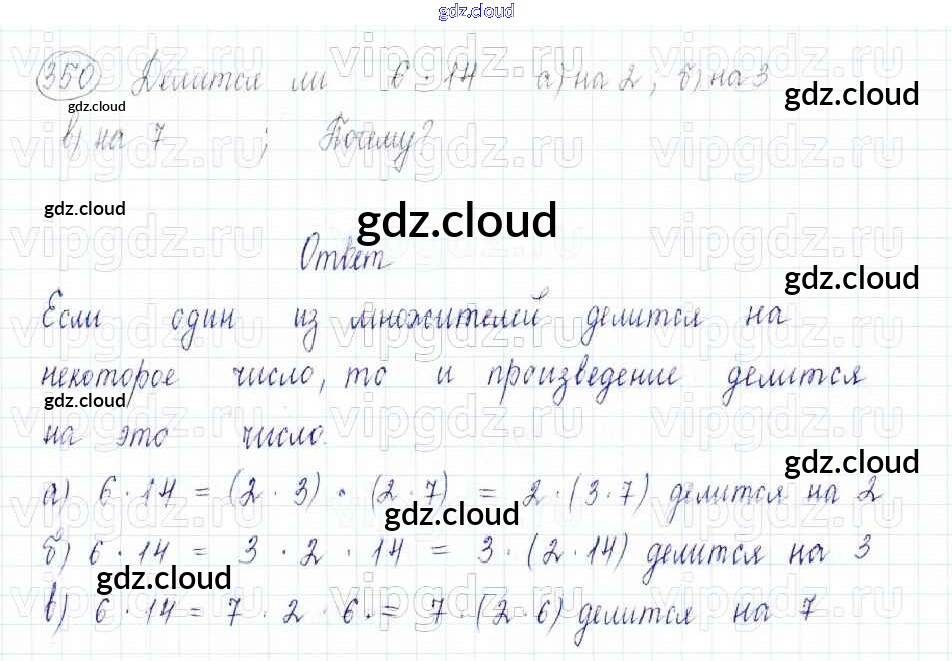 gdz.cloud
350 Делится ли 6 · 14 а) на 2; б) на 3
gdz.cloud
gdz.cloud
в) на 7 ; Почему?
gdz.cloud
gdz.cloud
Ответ
gdz.cloud
Если один из множителей делится на
некоторое число, то и произведение делится
gdz.cloud
на это число.
gdz.cloud
а) 6 · 14 = (2 · 3) · (2 · 7) = 2 · (3 · 7) делится на 2
gdz.cloud
б) 6 · 14 = 3 · 2 · 14 = 3 · (2 · 14) делится на 3
gdz.cloud
в) 6 · 14 = 7 · 2 · 6 · = 7 · (2 · 6) делится на 7
vipgdz.ru